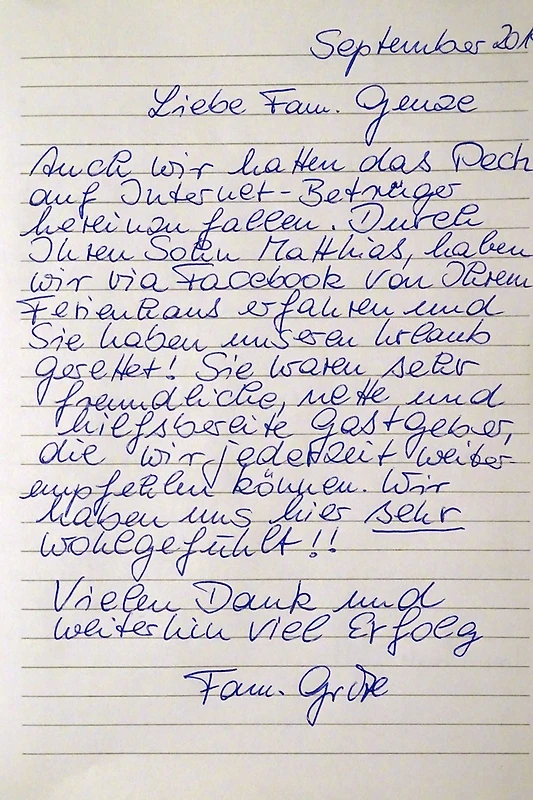 September 201
Liebe Fam. Genze
Auch wir hatten das Pech
auf Internet-Betrüger
hereinzu fallen. Durch
Ihren Sohn Matthias, haben
wir via Facebook von Ihrem
Ferienhaus erfahren und
Sie haben unseren Urlaub
gerettet! Sie waren sehr
freundliche, nette und
hilfsbereite Gastgeber,
die wir jederzeit weiter-
empfehlen können. Wir
haben uns hier sehr
wohlgefühlt!!
Vielen Dank und
weiterhin viel Erfolg
Fam.